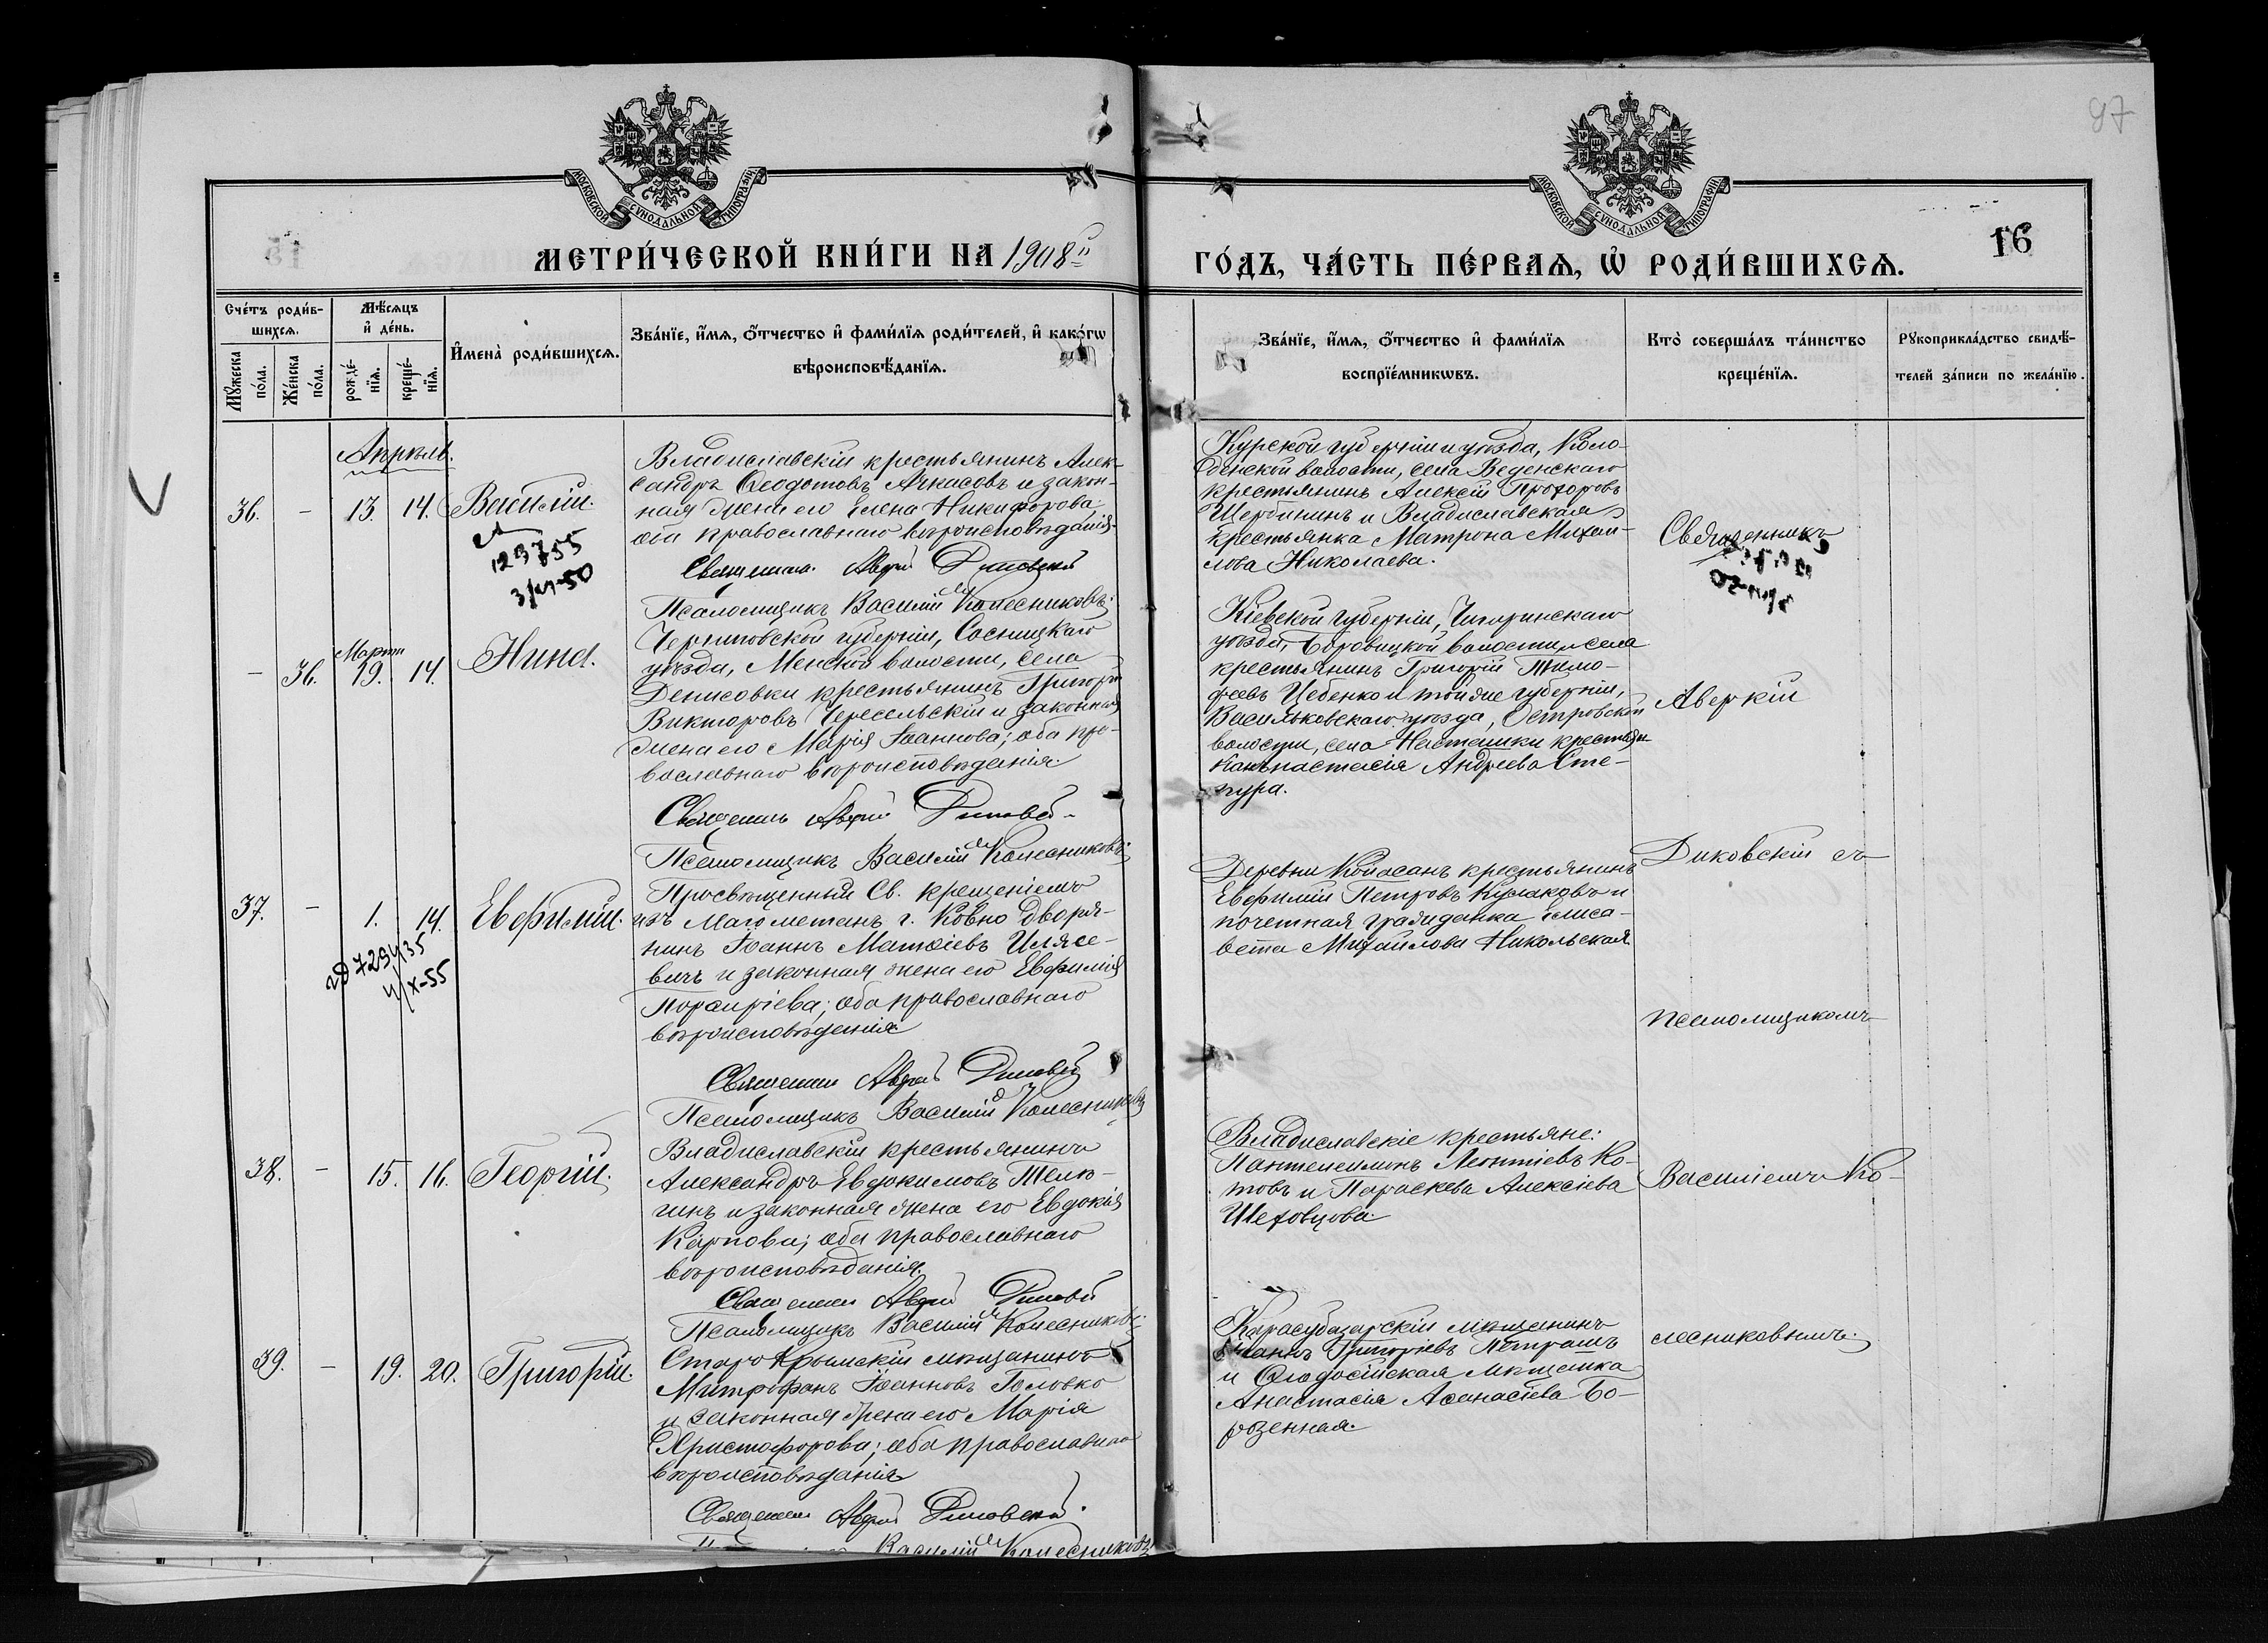 97
МОСКОВСКОЙ СѴНОДАЛЬНОЙ ТИПОГРАФІИ
МОСКОВСКОЙ СѴНОДАЛЬНОЙ ТИПОГРАФІИ
МЕТРИ́ЧЕСКОЙ КНИ́ГИ НА 1908й
ГО́ДЪ, ЧА́СТЬ ПЕ́РВАѦ, Ѡ҆ РОДИ́ВШИХСѦ.
16
Сче́тъ роди́в-
шихсѧ.
Мꙋжеска
по́ла.
Же́нска
по́ла.
Мѣ́сѧцъ
и҆ де́нь.
рожде́-
нїѧ.
креще́-
нїѧ.
И҆мена̀ роди́вшихсѧ.
Зва́нїе, и҆́мѧ, ѻ҆́тчество и҆ фами́лїѧ роди́телей, и҆ како́гѡ
вѣроисповѣ́данїѧ.
Зва́нїе, и҆́мѧ, ѻ҆́тчество и҆ фами́лїѧ
воспрїе́мникѡвъ.
Кто̀ соверша́лъ та́инство
креще́нїѧ.
Рꙋкоприкла́дство свидѣ́-
телей за́писи по жела́нїю.
Апрѣль.
36. – 13. 14. Василій.
123755
Владиславскій крестьянинъ Алек-
сандръ Ѳеодотовъ Аркасовъ и закон-
ная жена его Елена Никифорова
оба православнаго вѣроисповѣданія.
Священникъ Аверкій Диковскій
Псаломщикъ Василій Колесниковъ.
Курской губерніи и уѣзда, Коло-
денской волости, села Веденскаго
крестьянинъ Алексій Прохоровъ
Щербининъ и Владиславская
крестьянка Матрона Михаи-
лова Николаева.
Священникъ
– 36. Марта 19. 14. Нина.
Черниговской губерніи, Сосницкаго
уѣзда, Менской волости, села
Денисовки крестьянинъ Григорій
Викторовъ Чересельскій и законная
жена его Марія Іоаннова; оба пра-
вославнаго вѣроисповѣданія.
Священникъ Аверкій Диковскій
Псаломщикъ Василій Колесниковъ.
Кіевской губерніи, Чигиринскаго
уѣзда, Боровицкой волости и села
крестьянинъ Григорій Тимо-
феевъ Цебенко и той же губерніи,
Васильковскаго уѣзда, Островской
волости, села Насташки крестьян-
ка Анастасія Андреева Сте-
пура.
Аверкій
37. – 1. 14. Евфимій.
729435
4/X-55
Просвѣщенный Св. крещеніемъ
изъ Магометанъ г. Ковно дворя-
нинъ Іоаннъ Матѳіевъ Илясе-
вичъ и законная жена его Евфимія
Порфиріева; оба православнаго
вѣроисповѣданія
Священникъ Аверкій Диковскій
Псаломщикъ Василій Колесниковъ
Деревни Коп асанъ крестьянинъ
Евфимій Петровъ Кулаковъ и
почетная гражданка Елиса-
вета Михайлова Никольская.
Диковскій съ
псаломщикомъ
38. – 15. 16. Георгій.
Владиславскій крестьянинъ
Александръ Евдокимовъ Телю-
гинъ и законная жена его Евдокія
Карпова; оба православнаго
вѣроисповѣданія.
Священникъ Аверкій Диковскій
Псаломщикъ Василій Колесниковъ.
Владиславскіе крестьяне:
Пантелеимонъ Леонтіевъ Ко-
товъ и Параскева Алексіева
Шеховцова.
Василіемъ Ко-
39. – 19. 20. Григорій.
Старокрымскій мѣщанинъ
Митрофанъ Іоанновъ Головко
и законная жена его Марія
Христофорова; оба православнаго
вѣроисповѣданія
Священникъ Аверкій Диковскій.
Василій Колесниковъ
Карасубазарскій мѣщанинъ
Іоаннъ Григоріевъ Петрашъ
и Ѳеодосійская мѣщанка
Анастасія Аѳанасіева Бо-
розенная.
лесниковымъ.